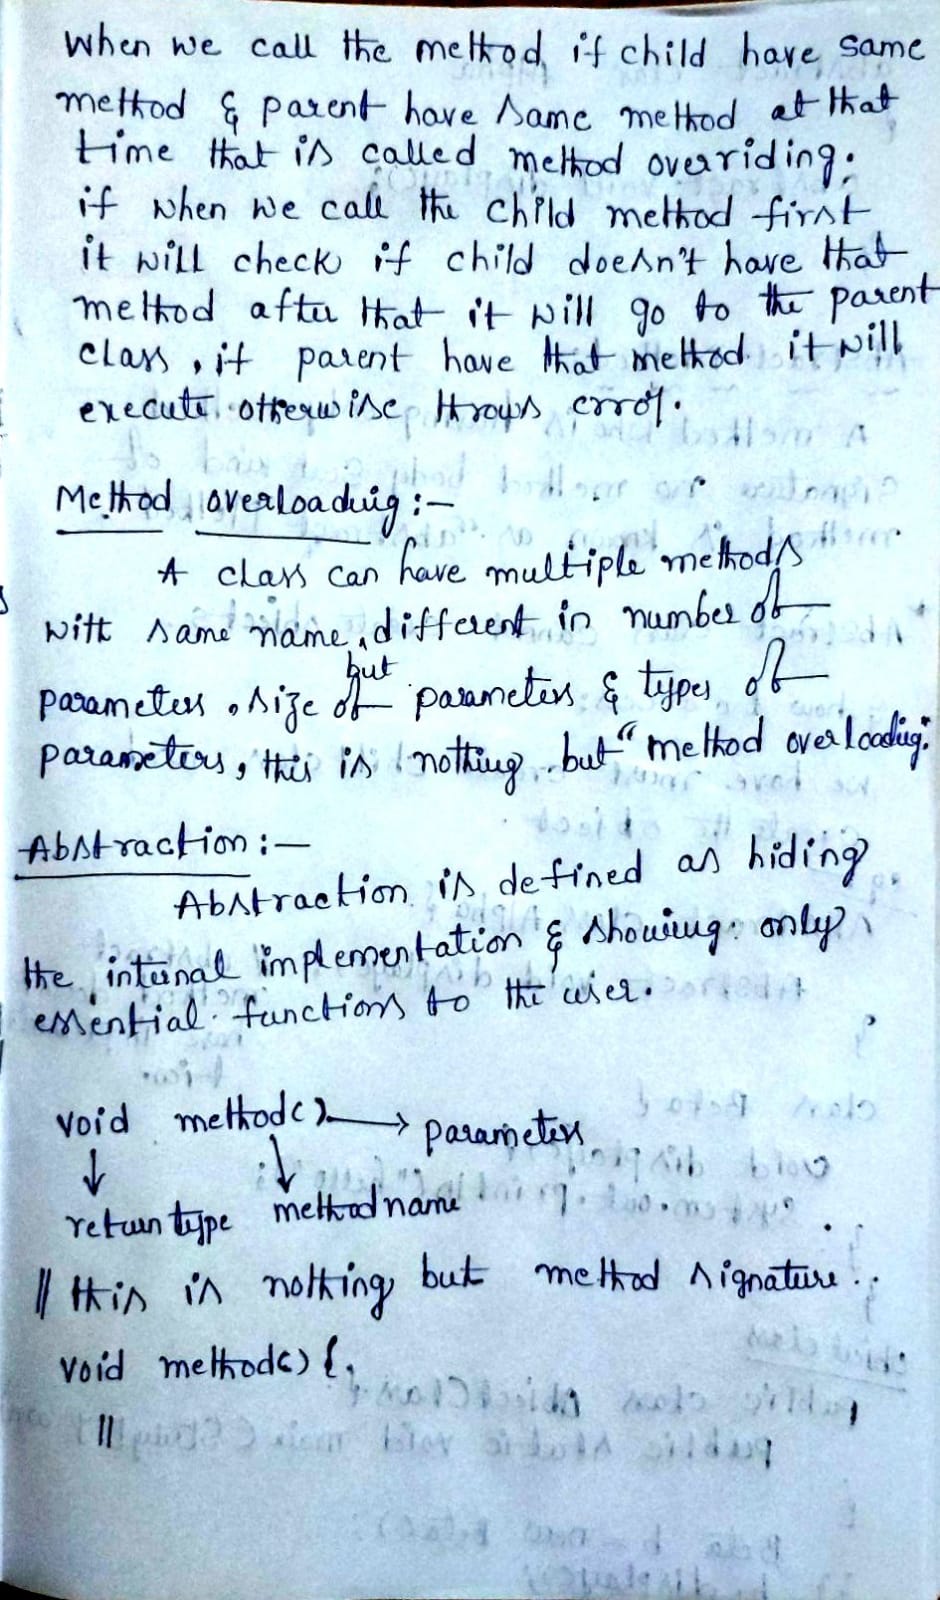 When we call the method, if child have same
method & parent have same method at that
time that is called method overriding.
if when we call the child method first
it will check if child doesn't have that
method after that it will go to the parent
class, if parent have that method it will
execute. otherwise throws error.
Method overloading :-
A class can have multiple methods
with same name, but different in number of
parameters, size of parameters & types of
parameters, this is nothing but "method overloading".
Abstraction :-
Abstraction is defined as hiding
the internal implementation & showing only
essential functions to the user.
void method() → parameters
return type method name
// this is nothing but method signature.
void method() {
//